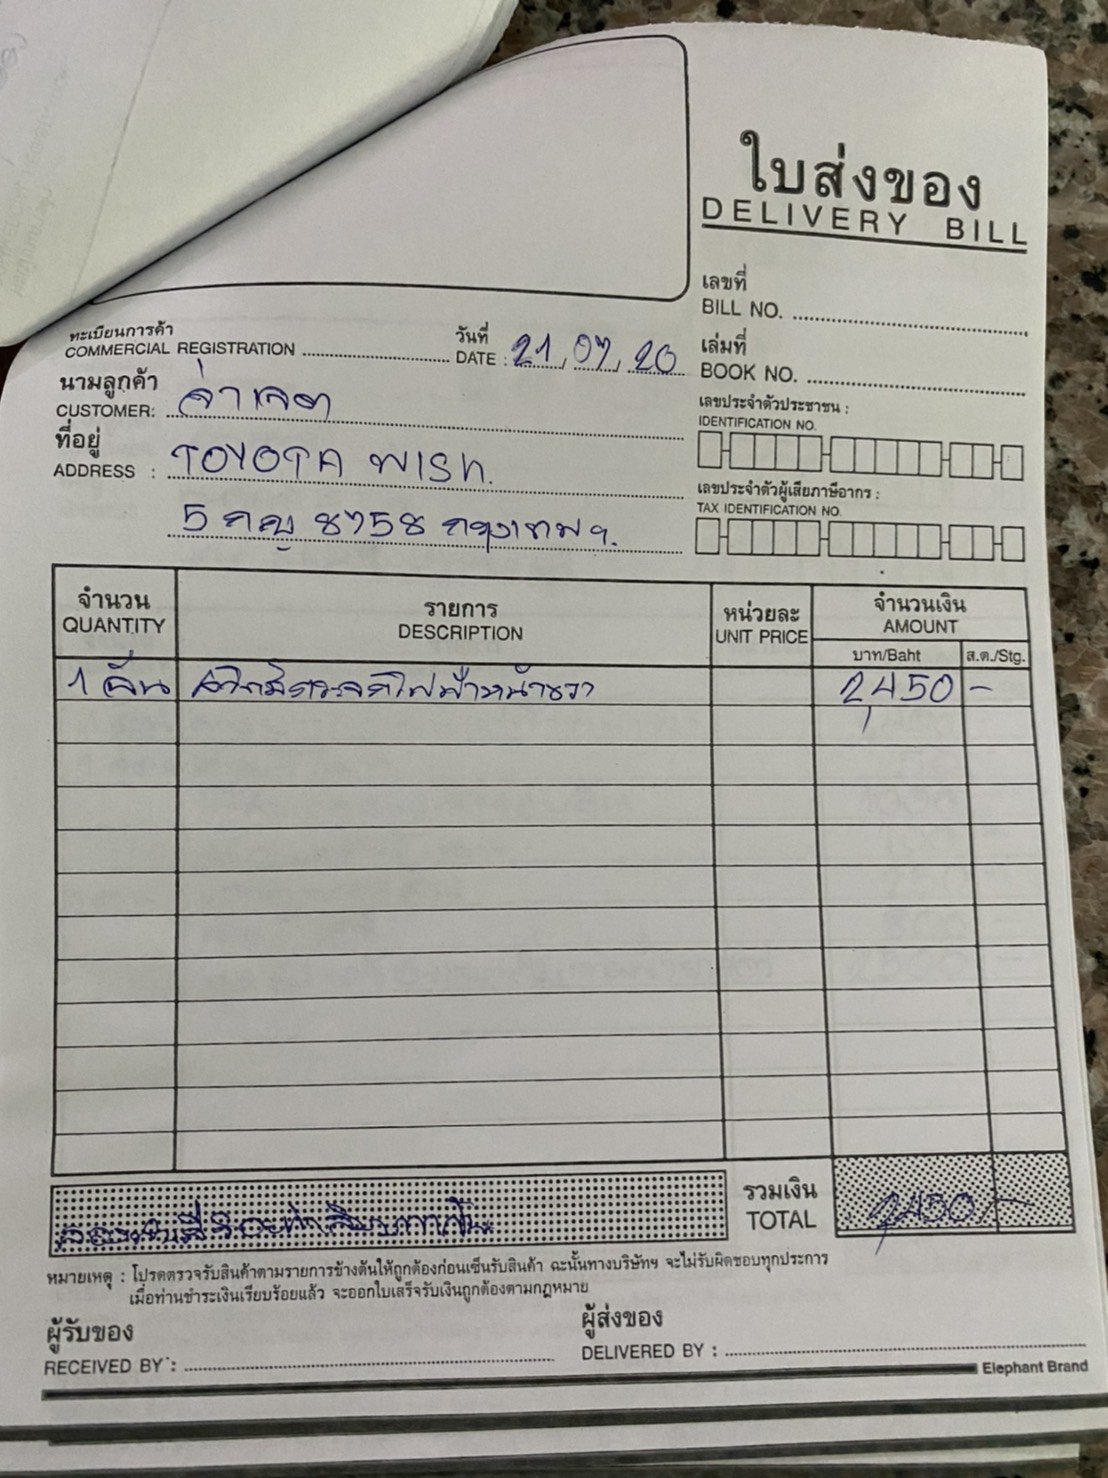 ใบส่งของ
DELIVERY BILL
เลขที่
BILL NO.
ทะเบียนการค้า
COMMERCIAL REGISTRATION
วันที่
DATE : 21, 07, 20
เล่มที่
BOOK NO.
นามลูกค้า
CUSTOMER: จ่าเจต
เลขประจำตัวประชาชน :
IDENTIFICATION NO.
ที่อยู่
ADDRESS : TOYOTA WISH.
เลขประจำตัวผู้เสียภาษีอากร :
TAX IDENTIFICATION NO.
5 กญ 8758 กรุงเทพฯ.
จำนวน รายการ หน่วยละ จำนวนเงิน
QUANTITY DESCRIPTION UNIT PRICE AMOUNT
บาท/Baht ส.ต./Stg.
1 อัน 2,450 -
รวมเงิน
TOTAL 2,450 -
หมายเหตุ : โปรดตรวจรับสินค้าตามรายการข้างต้นให้ถูกต้องก่อนเซ็นรับสินค้า ฉะนั้นทางบริษัทฯ จะไม่รับผิดชอบทุกประการ
เมื่อท่านชำระเงินเรียบร้อยแล้ว จะออกใบเสร็จรับเงินถูกต้องตามกฎหมาย
ผู้รับของ ผู้ส่งของ
RECEIVED BY : DELIVERED BY :
Elephant Brand